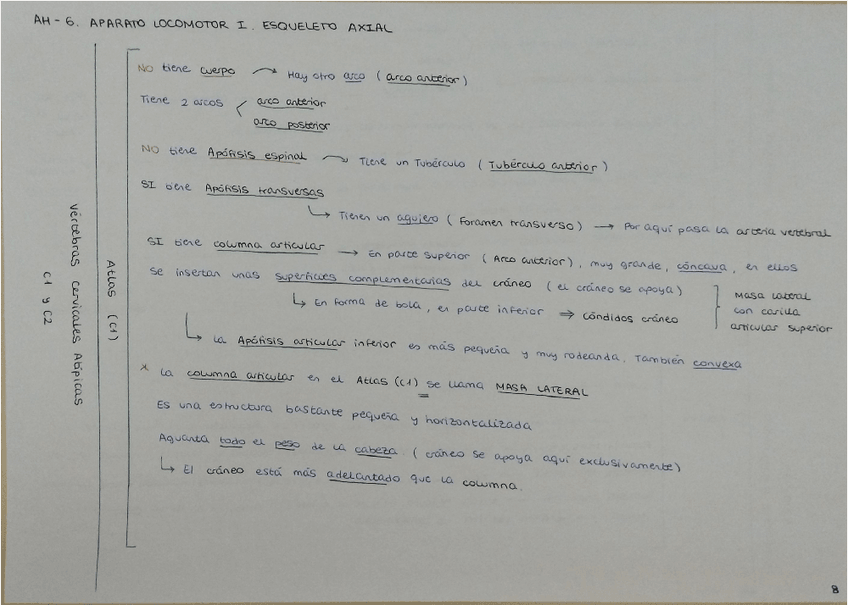 AH-6. APARATO LOCOMOTOR I. ESQUELETO AXIAL
Vértebras Cervicales Atípicas
C1 y C2
Atlas (C1)
NO tiene cuerpo → Hay otro arco (arco anterior)
Tiene 2 arcos < arco anterior
arco posterior
NO tiene Apófisis espinal → Tiene un Tubérculo (Tubérculo anterior)
SI tiene Apófisis transversas
↳ Tienen un agujero (Foramen transverso) → Por aquí pasa la arteria vertebral
SI tiene columna articular → En parte superior (Arco anterior), muy grande, cóncava, en ellos
se insertan unas superficies complementarias del cráneo (el cráneo se apoya)
↳ En forma de bola, en parte inferior ⇒ cóndidos cráneo
Masa lateral
con carilla
articular superior
↳ La Apófisis articular inferior es más pequeña y muy rodeanda. También convexa
* La columna articular en el Atlas (C1) se llama MASA LATERAL
Es una estructura bastante pequeña y horizontalizada
Aguanta todo el peso de la cabeza. (cráneo se apoya aquí exclusivamente)
↳ El cráneo está más adelantado que la columna.
8